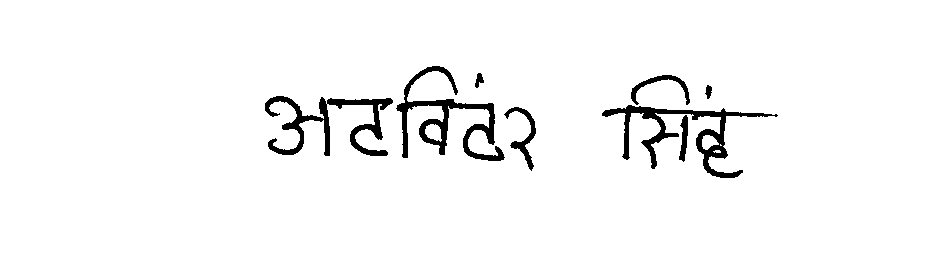 अटविंटर सिंह